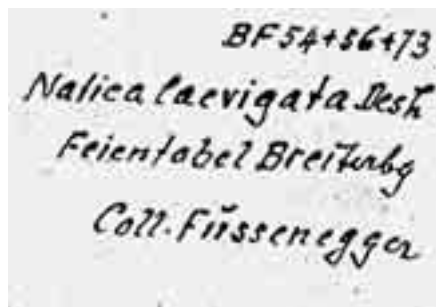 BF 54+56+73
Natica laevigata Desh
Feientobel Breitenbg
Coll. Füssenegger